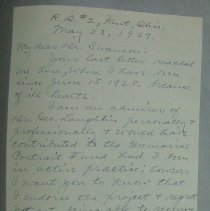 R.D. #2, Kent, Ohio.
May 23, 1929.
My dear Dr. Swanson:
Your last letter reached
me here where I have been
since June 15 1928, because
of ill health.
I am an admirer of
Dr. Geo. Laughlin personally &
professionally & would have
contributed to the Memorial
Portrait Fund had I been
in active practice;
I want you to know that
I endorse the project & regret
not being able to